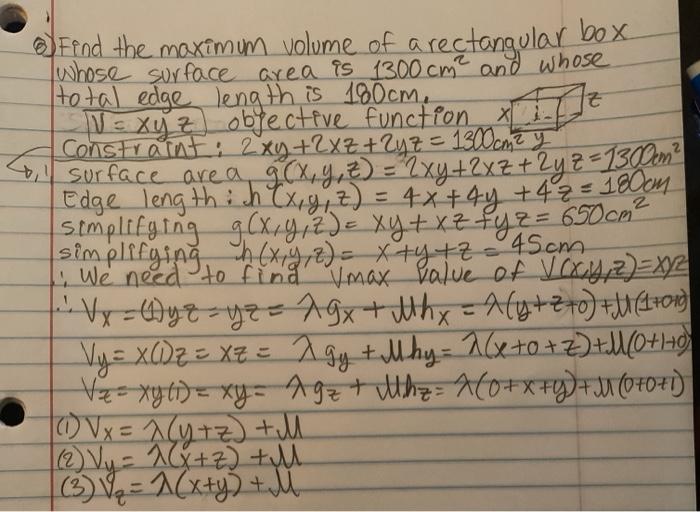 ②) Find the maximum volume of a rectangular box
whose surface area is 1300 cm² and whose
total edge length is 180cm.
V = xyz objective function x y z
Constraint: 2xy+2xz+2yz = 1300cm²
surface area g(x,y,z) = 2xy+2xz+2yz = 1300cm²
Edge length: h(x,y,z) = 4x+4y+4z = 180cm
simplifying g(x,y,z) = xy+xz+yz = 650cm²
simplifying h(x,y,z) = x+y+z = 45cm
∴ We need to find Vmax value of V(x,y,z)=xyz
∴ Vx = (1)yz = yz = λgx + Mhx = λ(y+z+0)+M(1+0+0)
Vy = x(1)z = xz = λgy + Mhy = λ(x+0+z)+M(0+1+0)
Vz = xy(1) = xy = λgz + Mhz = λ(0+x+y)+M(0+0+1)
(1) Vx = λ(y+z) + M
(2) Vy = λ(x+z) + M
(3) Vz = λ(x+y) + M